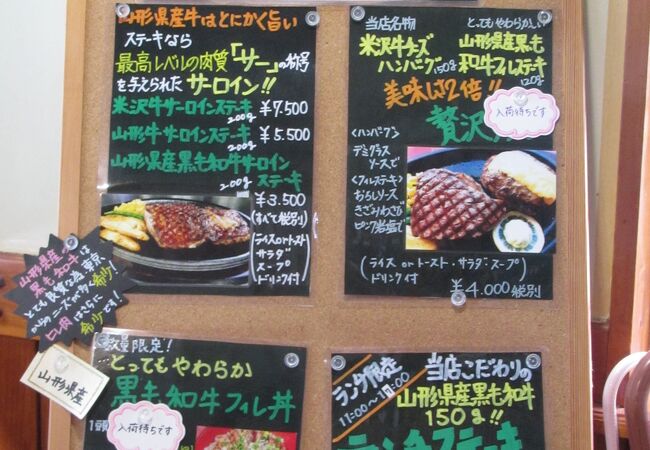 山形県産牛はとにかく旨い
ステーキなら
最高レベルの肉質「サー」の称号
を与えられた サーロイン!!
米沢牛サーロインステーキ ¥7.500
200g
山形牛サーロインステーキ ¥5.500
200g
山形県産黒毛和牛サーロイン
200g ステーキ
¥3.500
(すべて税別)
(ライス or トースト
サラダ
スープ
ドリンク付)
当店名物
米沢牛チーズ
ハンバーグ150g
とってもやわらかい
山形県産黒毛
和牛フィレステーキ
120g
美味しさ2倍!!
贅沢
入荷待ちです
<ハンバーグ>
デミグラス
ソースで
<フィレステーキ>
おろしソース
きざみわさび
ピンク岩塩で
(ライス or トースト・サラダ・スープ)
ドリンク付
¥4.000税別
山形県産
黒毛和牛は
とても良質な為、東京
からのニーズが多く希少
ヒレ肉はさらに
希少です!
山形県産
数量限定!
とってもやわらか
黒毛和牛フィレ丼
1頭
入荷待ちです
ランチ限定
11:00~
当店こだわりの
山形県産黒毛和牛
150g!!
ランチステーキ